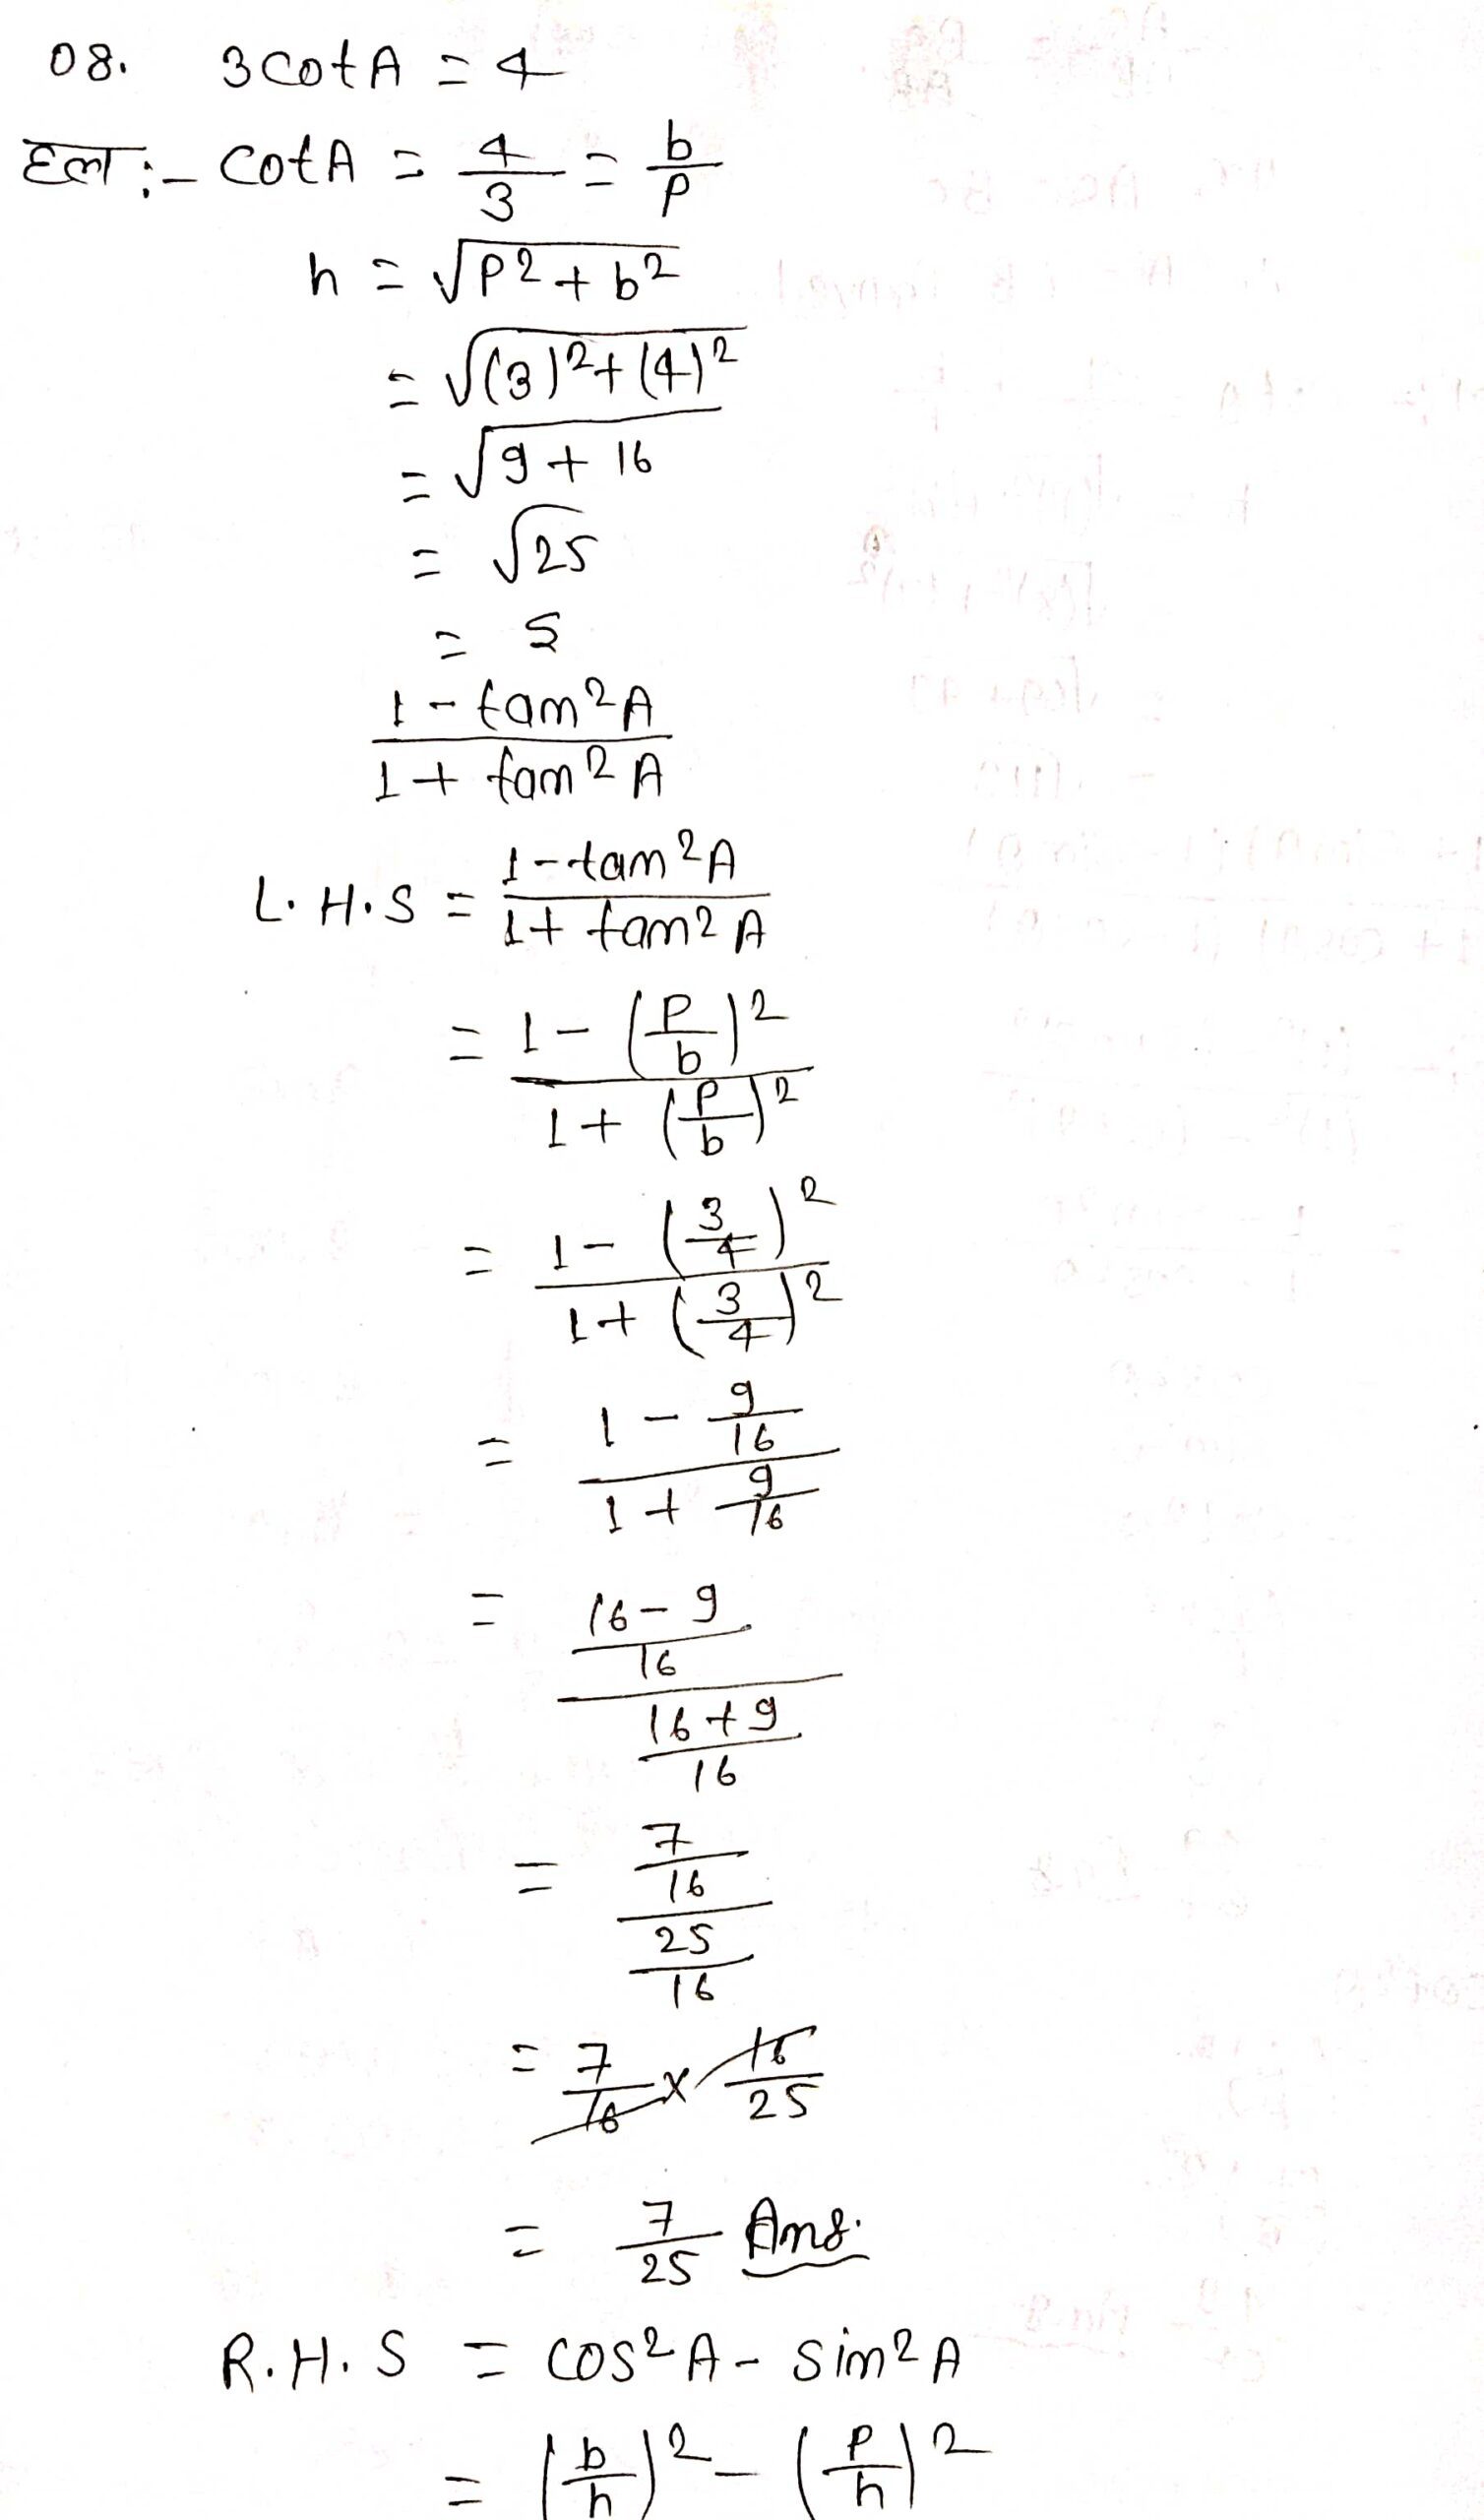 08. 3 cot A = 4
हल :- cot A = 4/3 = b/p
h = √(p² + b²)
= √((3)² + (4)²)
= √(9 + 16)
= √25
= 5
(1 - tan²A)/(1 + tan²A)
L.H.S = (1 - tan²A)/(1 + tan²A)
= (1 - (p/b)²)/(1 + (p/b)²)
= (1 - (3/4)²)/(1 + (3/4)²)
= (1 - 9/16)/(1 + 9/16)
= ((16 - 9)/16)/((16 + 9)/16)
= (7/16)/(25/16)
= 7/16 × 16/25
= 7/25 Ans.
R.H.S = cos²A - sin²A
= (b/h)² - (p/h)²